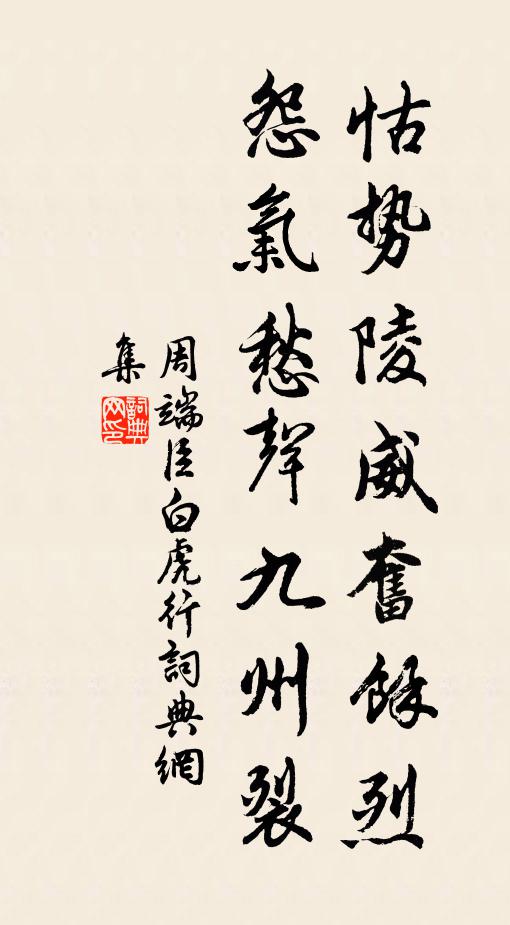 怙勢陵威奮餘烈
怨氣愁聲九州裂
周端臣白虎行詞典網
集
詞典網印